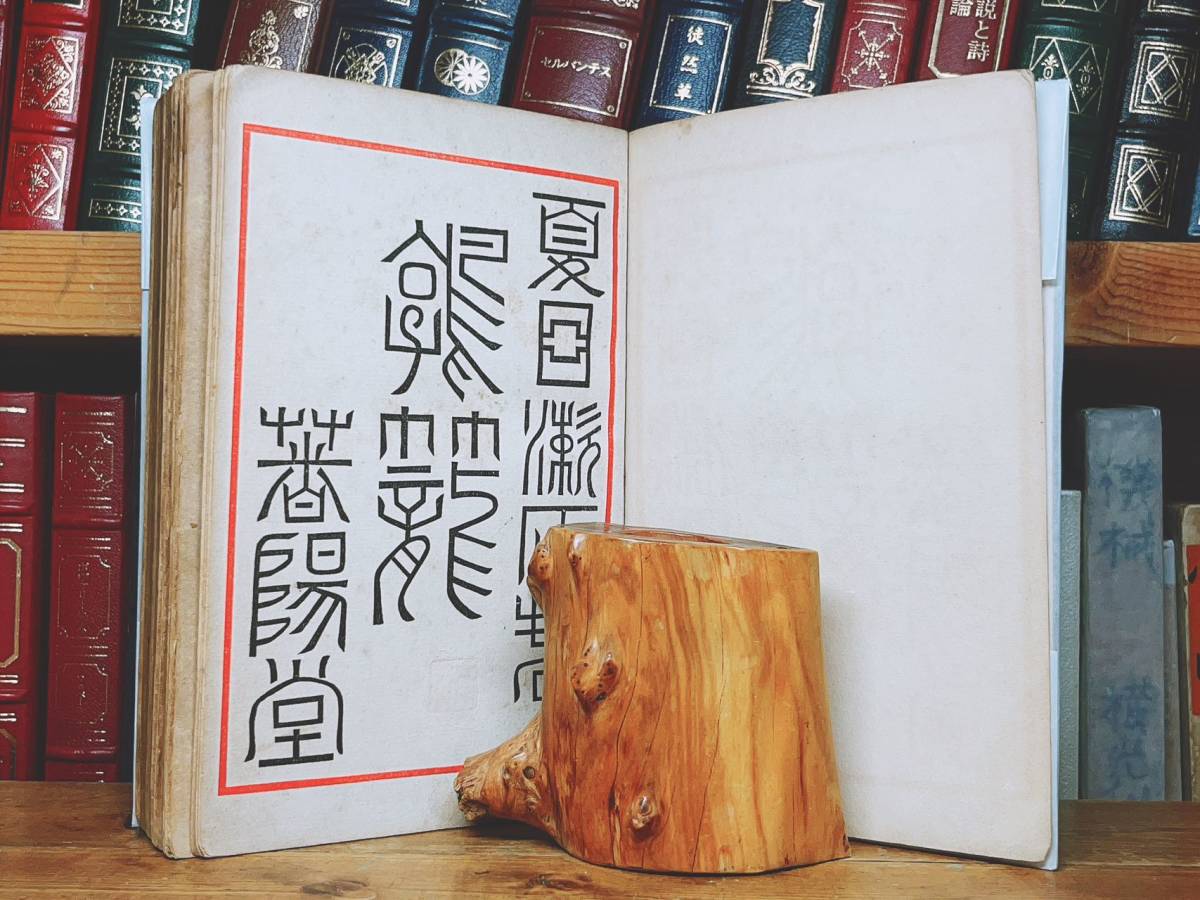 セルバンテス
徒然草
説と詩
論
夏目漱石著
鶉籠
春陽堂
機械
横光